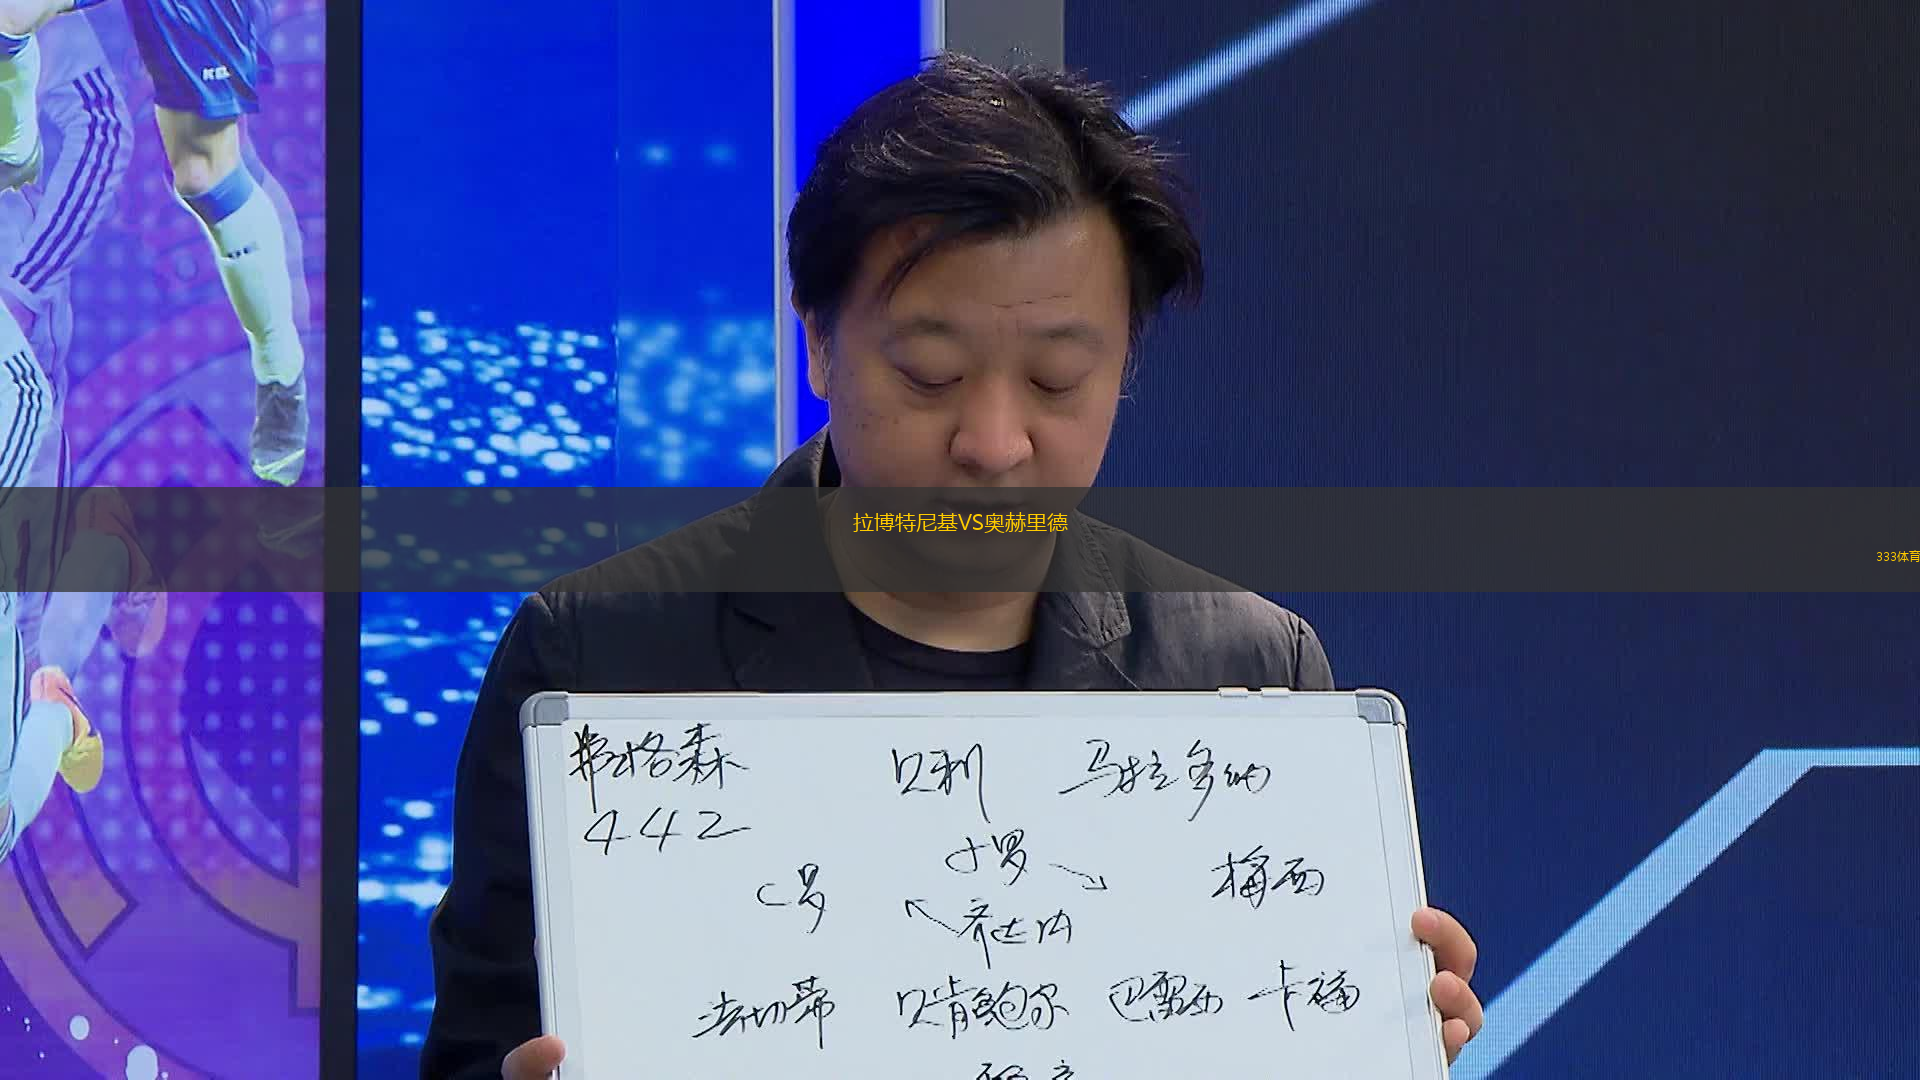 拉博特尼基VS奥赫里德
333体育
弗格森 贝利 马拉多纳
442
小罗
C罗 梅西
齐达内
法切蒂 贝肯鲍尔 巴雷西 卡福